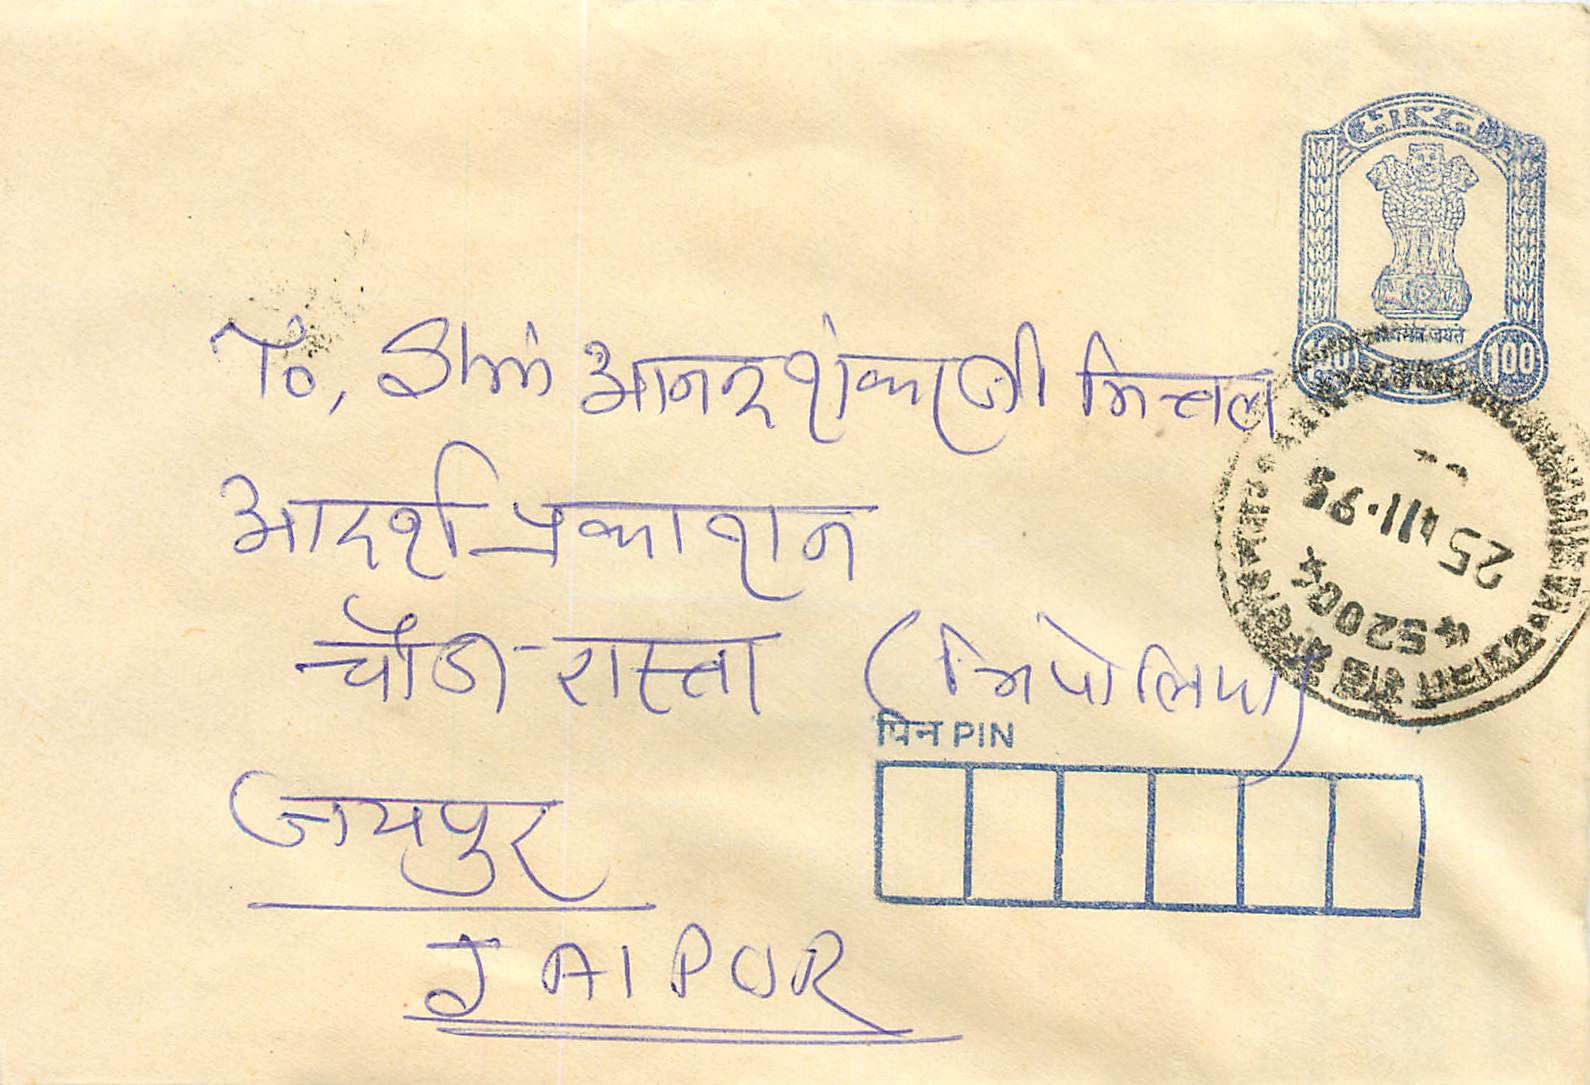 भारत
सत्यमेव जयते
1.00 1.00
To, Shri आनन्दशंकरजी मित्तल
आदर्श प्रकाशन
चौडा रास्ता (त्रिपोलिया)
पिन PIN
जयपुर
JAIPUR
25 III.95